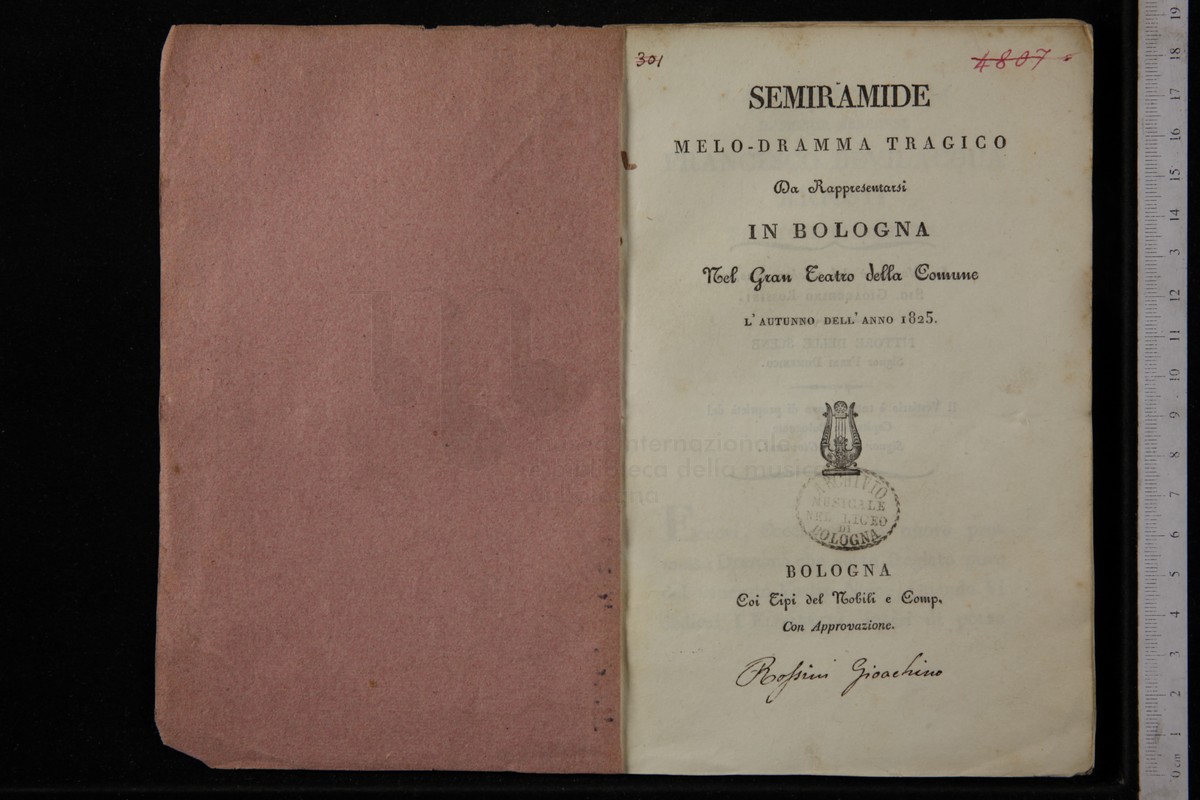 301
4807
SEMIRAMIDE
MELO-DRAMMA TRAGICO
Da Rappresentarsi
IN BOLOGNA
Nel Gran Teatro della Comune
L'AUTUNNO DELL'ANNO 1825.
ARCHIVIO
MUSICALE
NEL LICEO
DI
BOLOGNA
BOLOGNA
Coi Tipi del Nobili e Comp.
Con Approvazione.
Rossini Gioachino
internazionale
biblioteca della musica
Bologna
0 cm 1 2 3 4 5 6 7 8 9 10 11 12 13 14 15 16 17 18 19